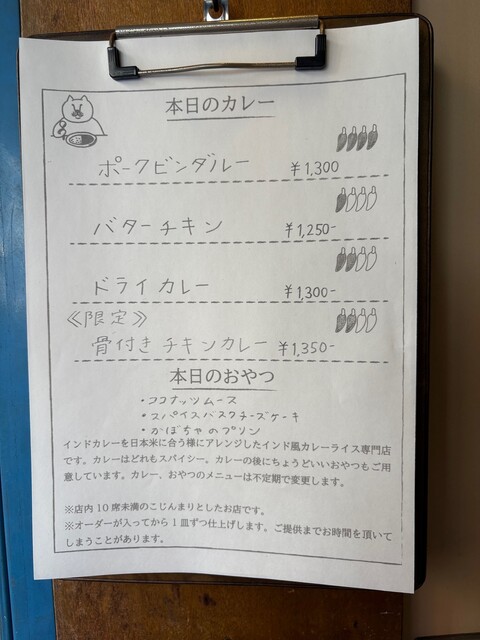 本日のカレー
ポークビンダルー ¥1,300
バターチキン ¥1,250-
ドライカレー ¥1,300-
≪限定≫
骨付きチキンカレー ¥1,350-
本日のおやつ
・ココナッツムース
・スパイスバスクチーズケーキ
・かぼちゃのプリン
インドカレーを日本米に合う様にアレンジしたインド風カレーライス専門店
です。カレーはどれもスパイシー。カレーの後にちょうどいいおやつもご用
意しています。カレー、おやつのメニューは不定期で変更します。
※店内10席未満のこじんまりとしたお店です。
※オーダーが入ってから1皿ずつ仕上げします。ご提供までお時間を頂いて
しまうことがあります。